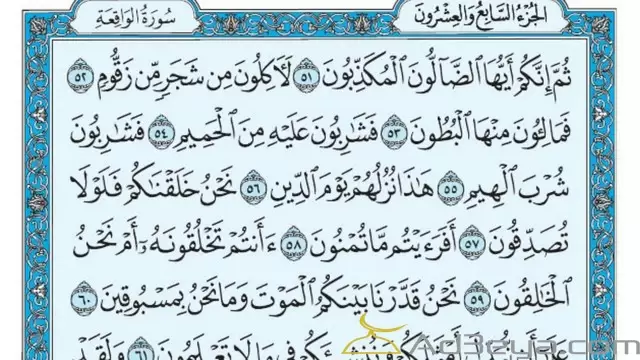 الجُزْءُ السَّابِعُ وَالعِشْرُونَ
سُورَةُ الوَاقِعَةِ
ثُمَّ إِنَّكُمْ أَيُّهَا ٱلضَّآلُّونَ ٱلْمُكَذِّبُونَ ٥١ لَأٓكِلُونَ مِن شَجَرٍ مِّن زَقُّومٍ ٥٢
فَمَالِـُٔونَ مِنْهَا ٱلْبُطُونَ ٥٣ فَشَٰرِبُونَ عَلَيْهِ مِنَ ٱلْحَمِيمِ ٥٤ فَشَٰرِبُونَ
شُرْبَ ٱلْهِيمِ ٥٥ هَٰذَا نُزُلُهُمْ يَوْمَ ٱلدِّينِ ٥٦ نَحْنُ خَلَقْنَٰكُمْ فَلَوْلَا
تُصَدِّقُونَ ٥٧ أَفَرَءَيْتُم مَّا تُمْنُونَ ٥٨ ءَأَنتُمْ تَخْلُقُونَهُۥٓ أَمْ نَحْنُ
ٱلْخَٰلِقُونَ ٥٩ نَحْنُ قَدَّرْنَا بَيْنَكُمُ ٱلْمَوْتَ وَمَا نَحْنُ بِمَسْبُوقِينَ ٦٠
أَمْثَٰلَكُمْ وَنُنشِئَكُمْ فِى مَا لَا تَعْلَمُونَ ٦١ وَلَقَدْ
Ad3eya.com